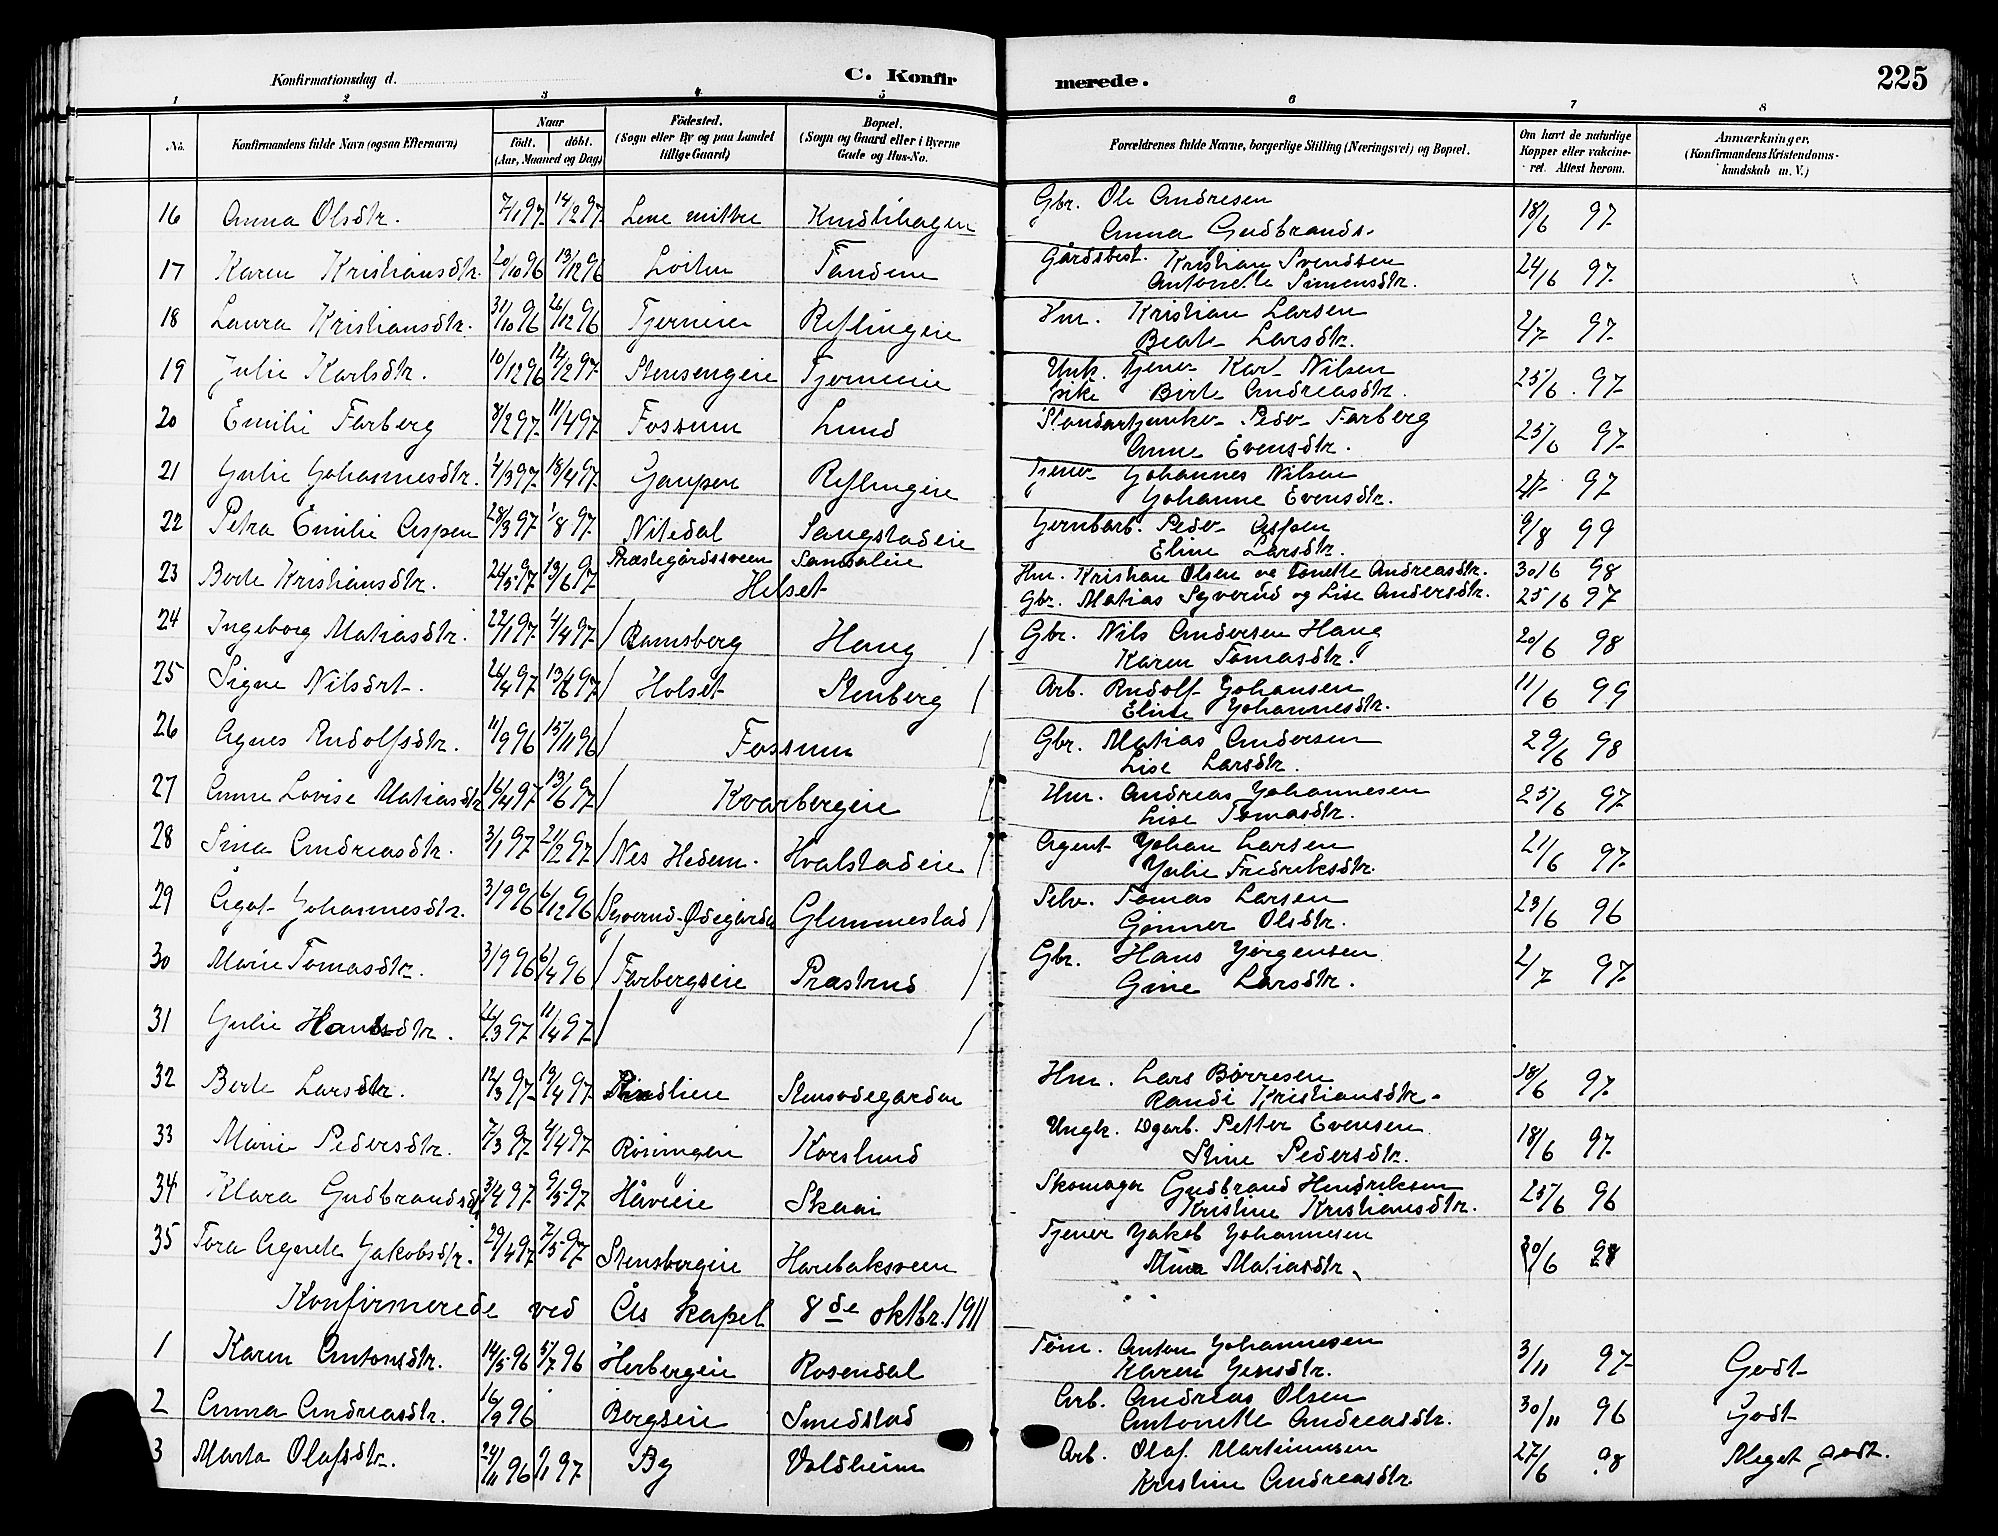 Konfirmationsdag d.
C. Konfirmerede.
225
1 2 3 4 5 6 7 8
No. Konfirmandens fulde Navn (ogsaa Efternavn) Naar födt. döbt. (Aar, Maaned og Dag) Födested. (Sogn eller By og paa Landet tillige Gaard) Bopæl. (Sogn og Gaard eller i Byerne Gade og Hus-No. Forældrenes fulde Navne, borgerlige Stilling (Næringsvei) og Bopæl. Om havt de naturlige Kopper eller vakcineret. Attest herom. Anmærkninger, (Konfirmandens Kristendomskundskab m. V.)
16 Anna Olsdtr. 7/1 97 14/2 97 Lene mittre Knudlihagen Gbr. Ole Andresen Anna Gudbrands. 18/6 97
17 Karen Kristiansdtr. 20/10 96 13/12 96 Loiten Tanden Gårdsbest. Kristian Svendsen Antonette Simensdtr. 24/6 97
18 Laura Kristiansdtr. 31/10 96 26/12 96 Tjerneie Reflingeie Hm. Kristian Larsen Beate Larsdtr. 2/7 97
19 Julie Karlsdtr. 10/12 96 14/2 97 Stensengeie Tjerneie Unk. Tjener Karl Nilsen Pike Birte Andreasdtr. 25/6 97
20 Emilie Farberg 8/2 97 11/4 97 Fossum Lund Peder Farberg Anne Evensdtr. 25/6 97
21 Julie Johannesdtr. 4/3 97 18/4 97 Gaupen Reflingeie Tjener Johannes Nilsen Johanne Evensdtr. 2/7 97
22 Petra Emilie Aspen 28/3 97 1/8 97 Nitedal Sangstadeie Jernbarb. Peder Aspen Eline Larsdtr. 9/8 99
23 Berte Kristiansdtr. 24/5 97 13/6 97 Præstegårdssveen Samdaleie Hm. Kristian Olsen og Tonette Andreasdtr. 30/6 98
Helset Gbr. Matias Syverud og Lise Andersdtr. 25/6 97
24 Ingeborg Matiasdtr. 22/1 97 4/4 97 Ramsberg Haug Gbr. Nils Andersen Haug Karen Tomasdtr. 20/6 98
25 Signe Nilsdrt. 26/4 97 13/6 97 Holset Stenberg Arb. Rudolf Johansen Elise Johannesdtr. 11/6 99
26 Agnes Rudolfsdtr. 11/9 96 15/11 96 Fossum Gbr. Matias Andersen Lise Larsdtr. 29/6 98
27 Anne Lovise Matiasdtr 16/4 97 13/6 97 Kvarbergeie Hm. Andreas Johannesen Lise Tomasdtr. 25/6 97
28 Sina Andreasdtr. 3/1 97 21/2 97 Nes Hedem. Hvalstadeie Agent Johan Larsen Julie Fredriksdtr. 21/6 97
29 Agot Johannesdtr. 3/9 96 6/12 96 Syverud-Ødegården Glemmestad Selv. Tomas Larsen Gønner Olsdtr. 23/6 96
30 Marie Tomasdtr. 3/9 96 6/4 96 Farbergseie Prastrud Gbr. Hans Jørgensen Gine Larsdtr. 2/7 97
31 Julie Hansdtr. 3 97 11/4 97
32 Berte Larsdtr. 12/3 97 19/4 97 Rindlieie Stensødegården Hm. Lars Børresen Randi Kristiansdtr. 18/6 97
33 Marie Pedersdtr. 7/3 97 4/4 97 Røsiingeie Korslund Ungk. Dgarb. Petter Evensen Stine Pedersdtr. 18/6 97
34 Klara Gudbrandsdtr 3/4 97 9/5 97 Håveie Skaai Skomager Gudbrand Hendriksen Kristine Kristiansdtr. 25/6 96
35 Tora Agnete Jakobsdtr. 29/4 97 7/5 97 Stensbergeie Harebaksveen Tjener Jakob Johannesen Mina Matiasdtr. 30/6 98
Konfirmerede ved Ås kapel 8de oktbr. 1911
1 Karen Antonsdtr. 14/5 96 5/7 96 Herbergeie Rosendal Tøm. Anton Johannesen Karen Jensdtr. 3/11 97 Godt
2 Anna Andreasdtr. 16/9 96 Bergseie Smedstad Arb. Andreas Olsen Antonette Andreasdtr. 30/11 96 Godt
3 Marta Olafsdtr. 24/11 96 97 By Valdheim Arb. Olaf Martinusen Kristine Andreasdtr. 27/6 98 Meget godt.